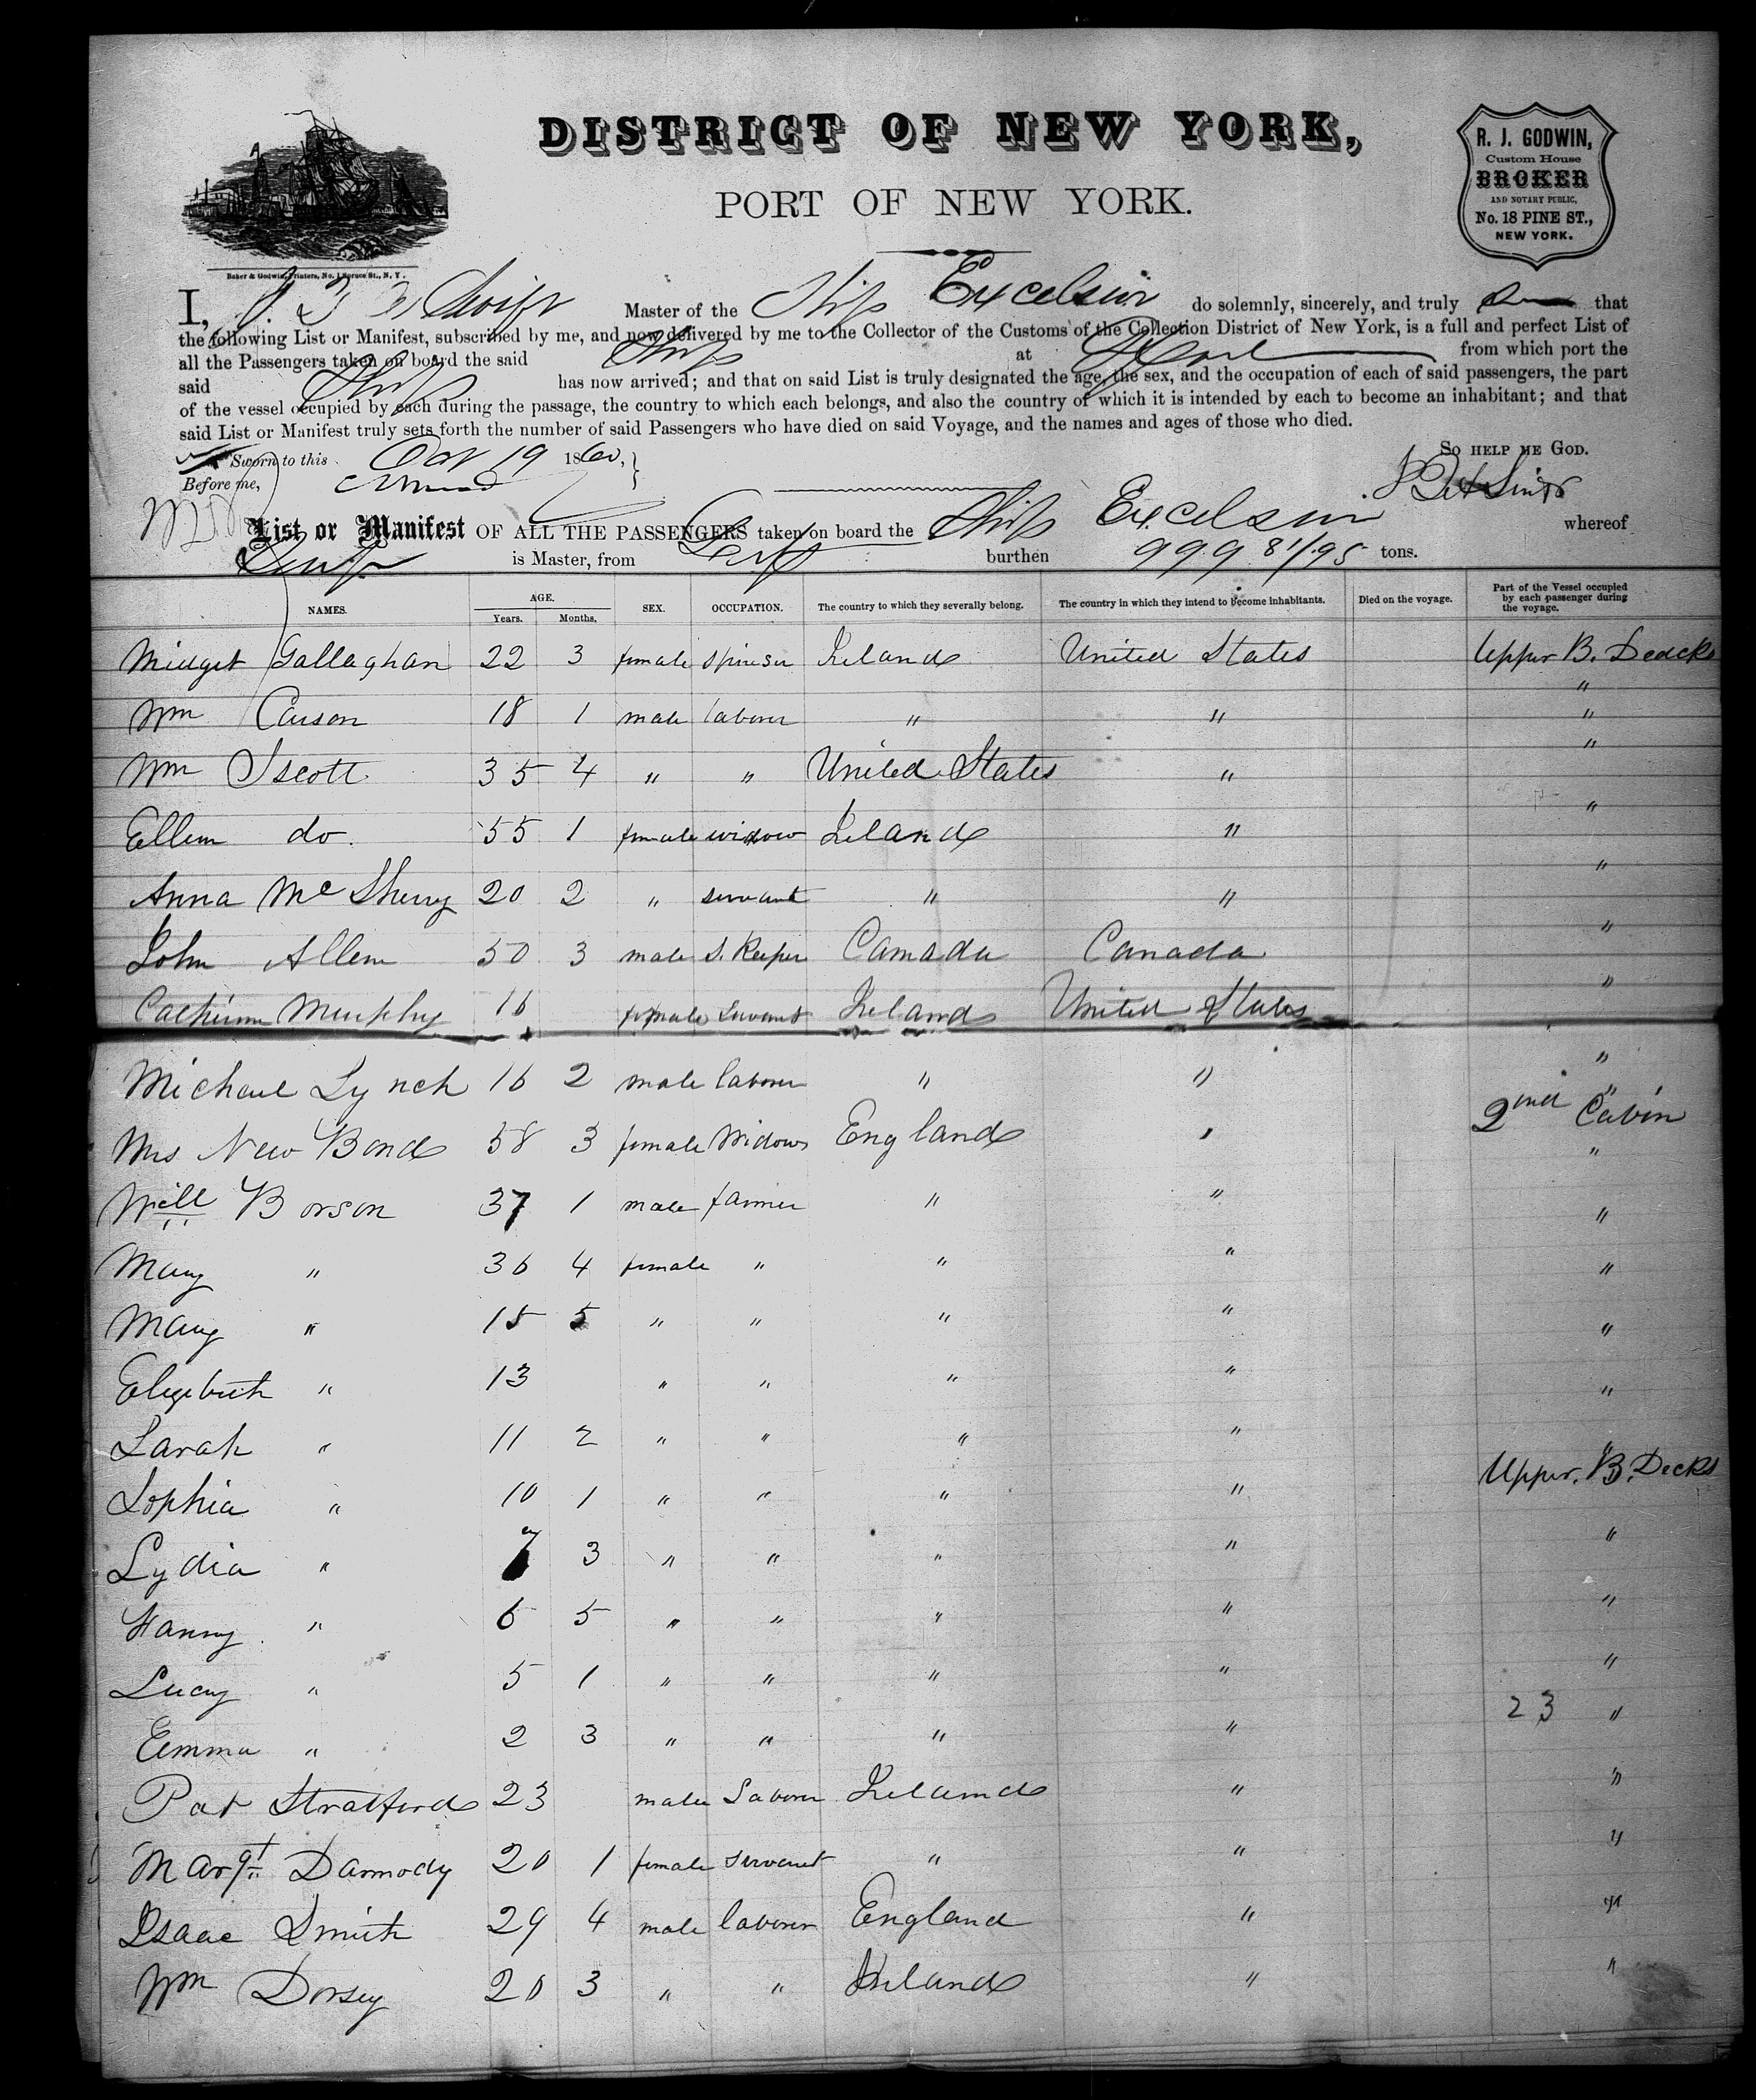 DISTRICT OF NEW YORK,
PORT OF NEW YORK.
R. J. GODWIN,
Custom House
BROKER
AND NOTARY PUBLIC,
No. 18 PINE ST.,
NEW YORK.
Baker & Godwin, Printers, No. 1 Spruce St., N. Y.
I, Swift Master of the Ship Excelsior do solemnly, sincerely, and truly that
the following List or Manifest, subscribed by me, and now delivered by me to the Collector of the Customs of the Collection District of New York, is a full and perfect List of
all the Passengers taken on board the said Ship at from which port the
said Ship has now arrived; and that on said List is truly designated the age, the sex, and the occupation of each of said passengers, the part
of the vessel occupied by each during the passage, the country to which each belongs, and also the country of which it is intended by each to become an inhabitant; and that
said List or Manifest truly sets forth the number of said Passengers who have died on said Voyage, and the names and ages of those who died.
Sworn to this 19 1860, So help me God.
Before me,
List or Manifest OF ALL THE PASSENGERS taken on board the Ship Excelsior whereof
is Master, from burthen 999 81/95 tons.
NAMES. AGE. Years. Months. SEX. OCCUPATION. The country to which they severally belong. The country in which they intend to become inhabitants. Died on the voyage. Part of the Vessel occupied by each passenger during the voyage.
Midget Gallaghan 22 3 female Ireland United States Upper B. Deacks
Wm Carson 18 1 male laborer " " "
Wm Scott 35 4 " " United States " "
Ellen do. 55 1 female widow Ireland " "
Anna McSherry 20 2 " servant " " "
John Allen 50 3 male S. Keeper Canada Canada "
Catherine Murphy 16 female Servant Ireland United States "
Michael Lynch 16 2 male laborer " " "
Mrs New Bond 58 3 female Widow England " 2nd Cabin
Will Borson 37 1 male farmer " " "
Mary " 36 4 female " " " "
Mary " 15 5 " " " " "
Elizebeth " 13 " " " " "
Sarah " 11 2 " " " " "
Sophia " 10 1 " " " " Upper. B. Decks
Lydia " 7 3 " " " " "
Fanny " 6 5 " " " " "
Lucy " 5 1 " " " " "
Emma " 2 3 " " " " 23 "
Pat Stratford 23 male Laborer Ireland " "
Margt Darmody 20 1 female servant " " "
Isaac Smith 29 4 male laborer England " "
Wm Dorsey 20 3 " " Ireland " "